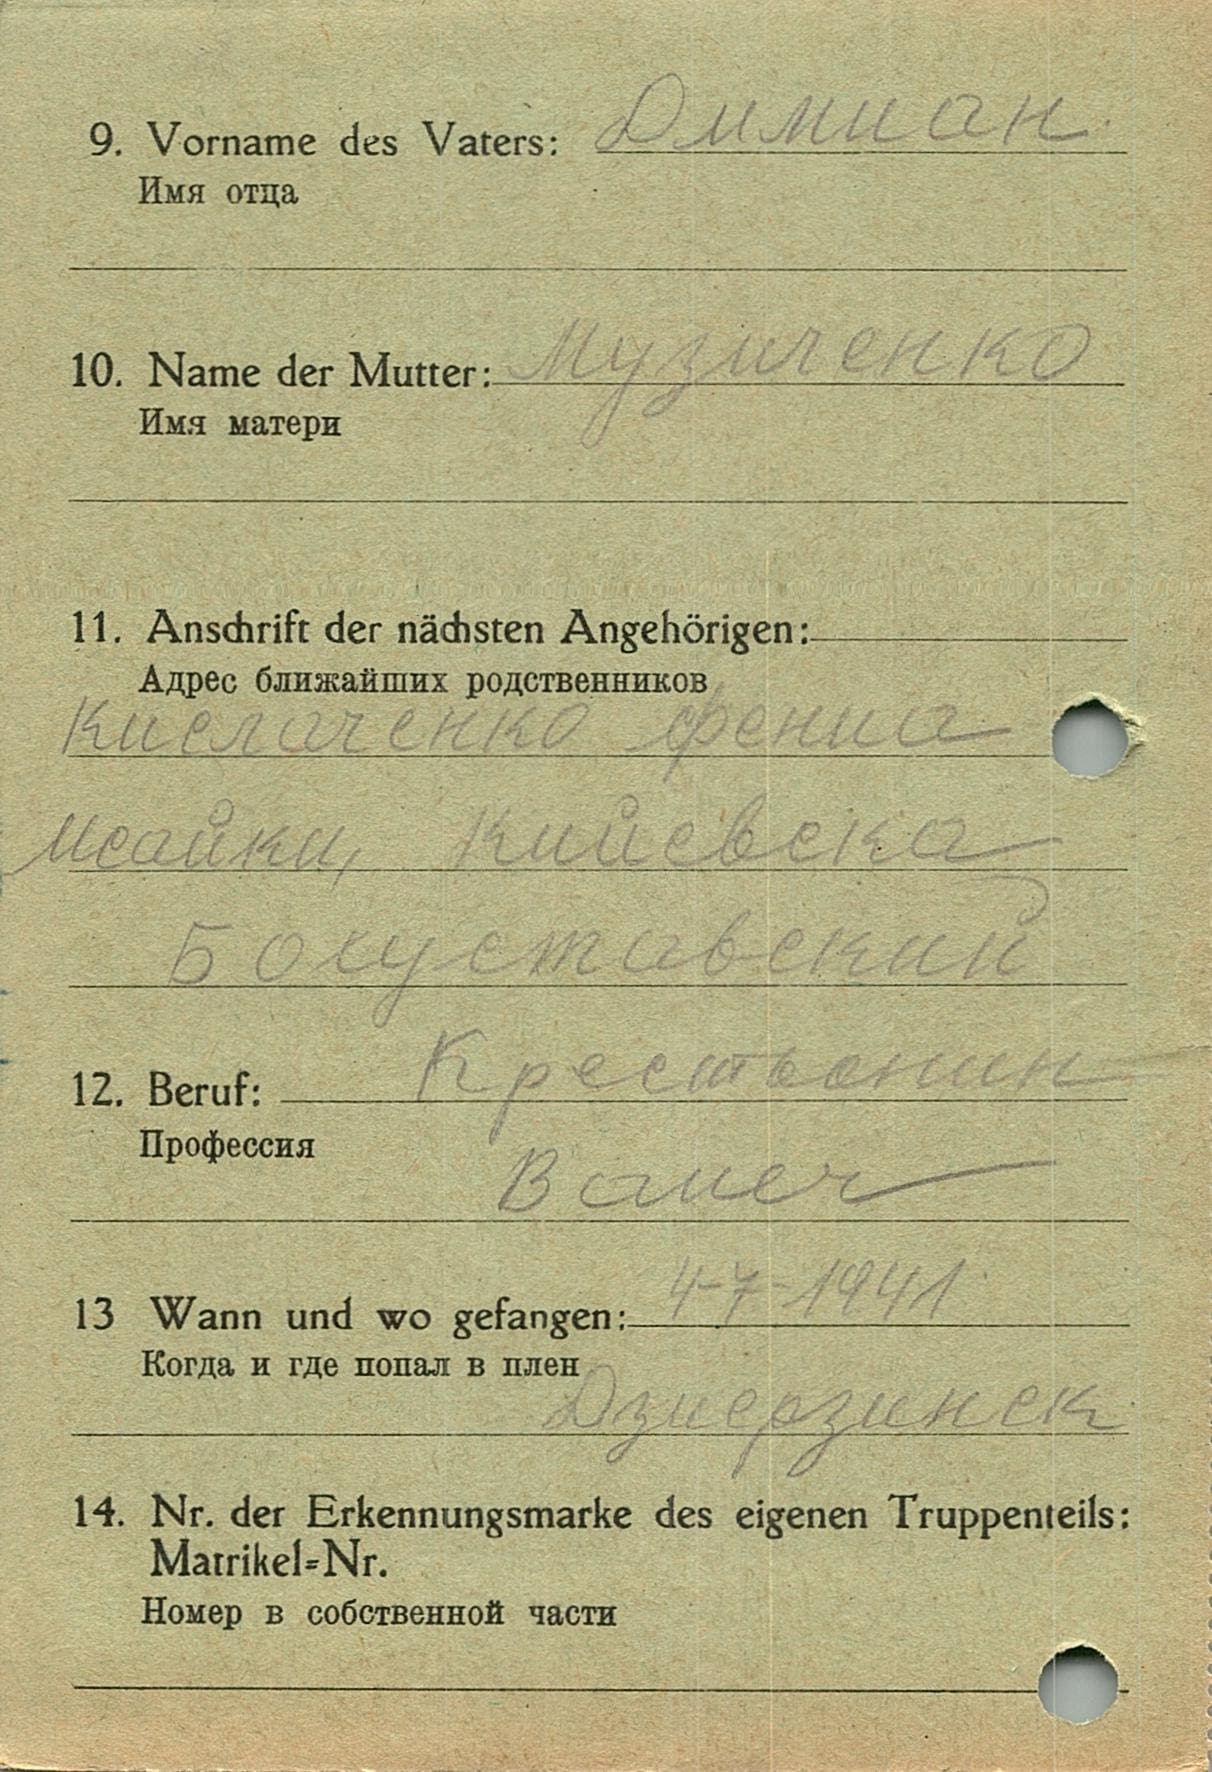 9. Vorname des Vaters: Димиан
Имя отца
10. Name der Mutter: Музиченко
Имя матери
11. Anschrift der nächsten Angehörigen:
Адрес ближайших родственников
Кислаченко фениа
Исайки, Кийевска
Богуставский
12. Beruf: Крестьенин
Профессия
Вауеч
13 Wann und wo gefangen: 4-7-1941
Когда и где попал в плен
Дзиерзинск
14. Nr. der Erkennungsmarke des eigenen Truppenteils:
Matrikel=Nr.
Номер в собственной части